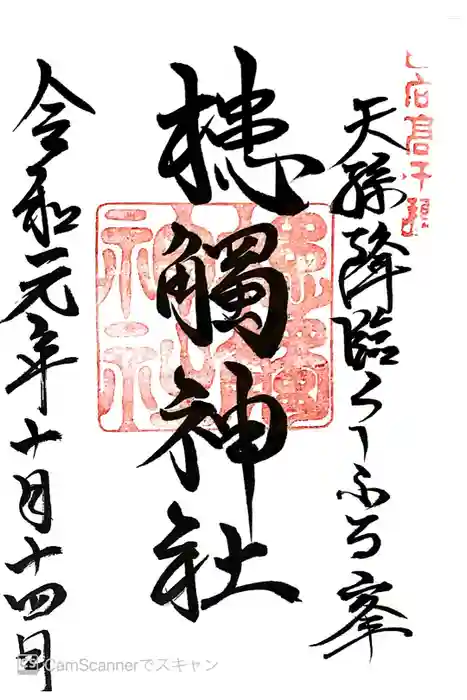 天孫降臨くしふる峯
槵觸神社
令和元年十月十四日
CamScannerでスキャン